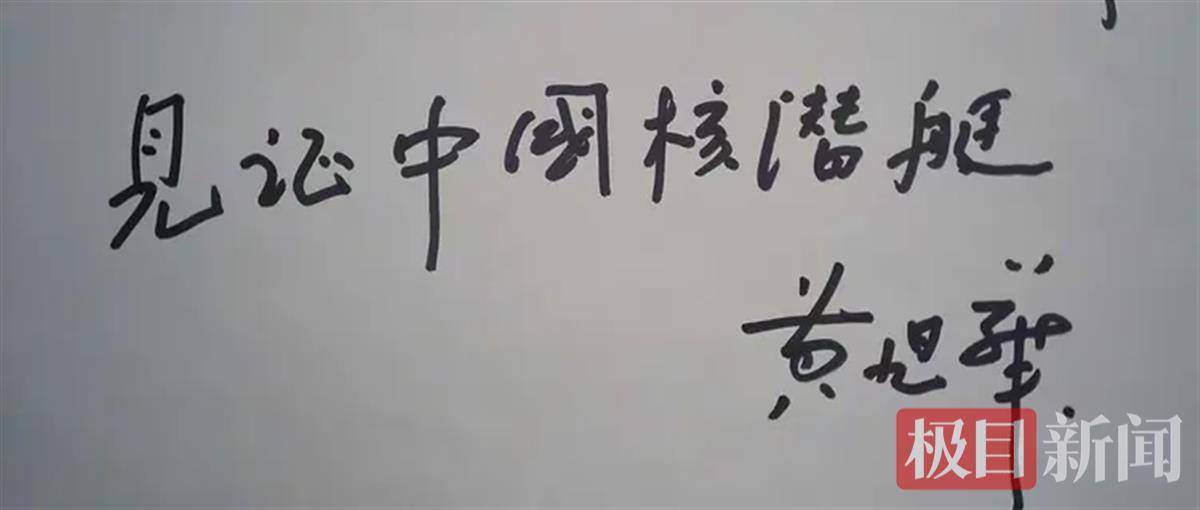 见证中國核潜艇
黄旭華
极目新闻